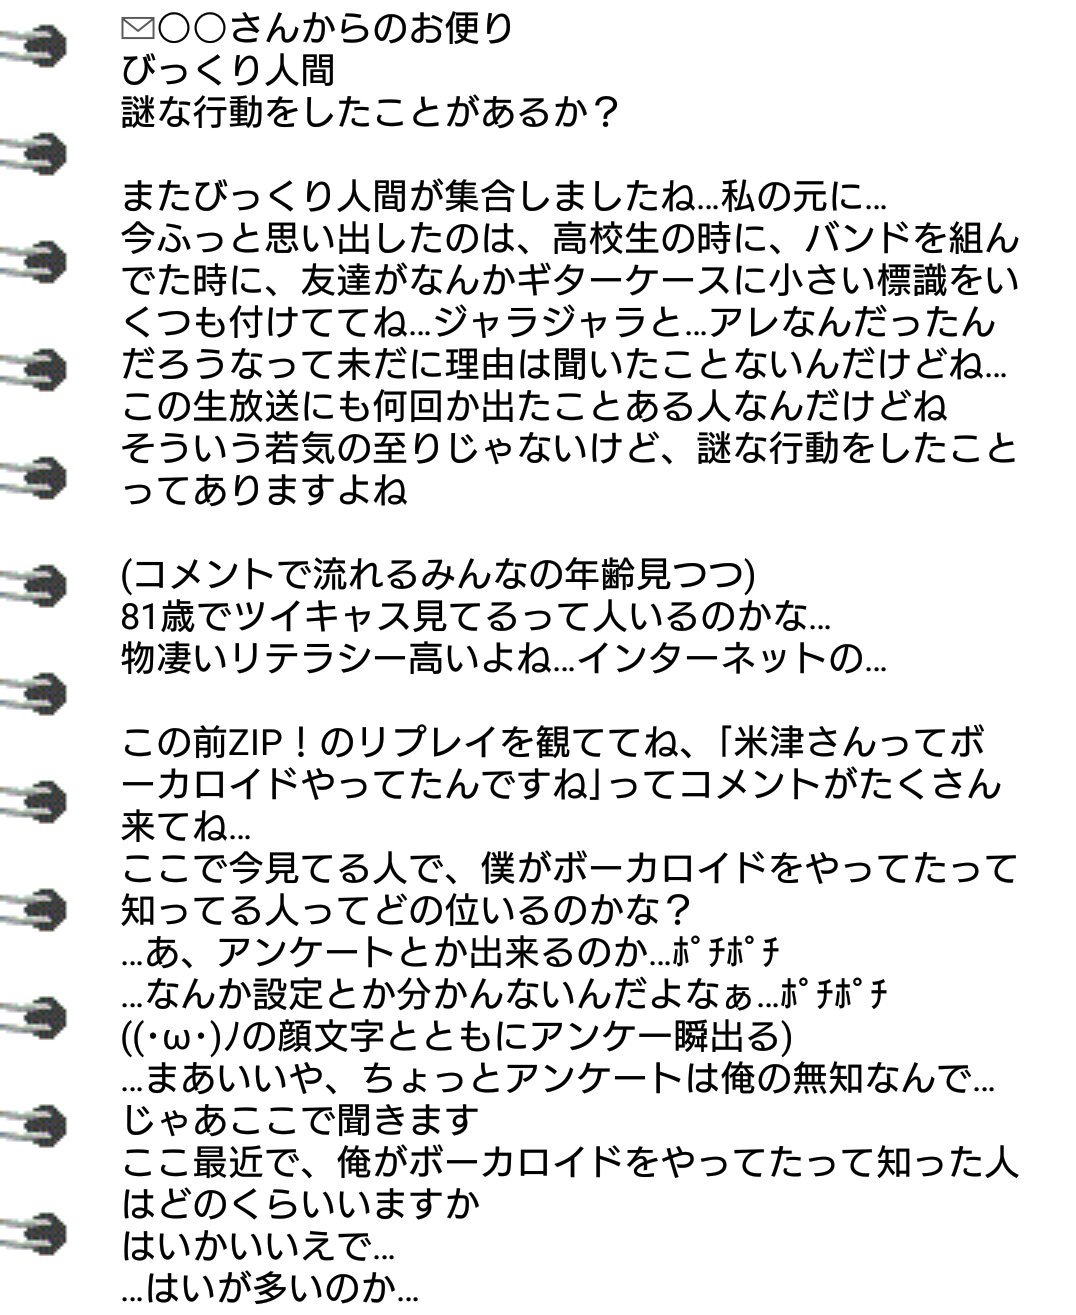 ✉○○さんからのお便り
びっくり人間
謎な行動をしたことがあるか？
またびっくり人間が集合しましたね…私の元に…
今ふっと思い出したのは、高校生の時に、バンドを組ん
でた時に、友達がなんかギターケースに小さい標識をい
くつも付けててね…ジャラジャラと…アレなんだったん
だろうなって未だに理由は聞いたことないんだけどね…
この生放送にも何回か出たことある人なんだけどね
そういう若気の至りじゃないけど、謎な行動をしたこと
ってありますよね
(コメントで流れるみんなの年齢見つつ)
81歳でツイキャス見てるって人いるのかな…
物凄いリテラシー高いよね…インターネットの…
この前ZIP！のリプレイを観ててね、｢米津さんってボ
ーカロイドやってたんですね｣ってコメントがたくさん
来てね…
ここで今見てる人で、僕がボーカロイドをやってたって
知ってる人ってどの位いるのかな？
…あ、アンケートとか出来るのか…ﾎﾟﾁﾎﾟﾁ
…なんか設定とか分かんないんだよなぁ…ﾎﾟﾁﾎﾟﾁ
((･ω･)ﾉの顔文字とともにアンケ一瞬出る)
…まあいいや、ちょっとアンケートは俺の無知なんで…
じゃあここで聞きます
ここ最近で、俺がボーカロイドをやってたって知った人
はどのくらいいますか
はいかいいえで…
…はいが多いのか…